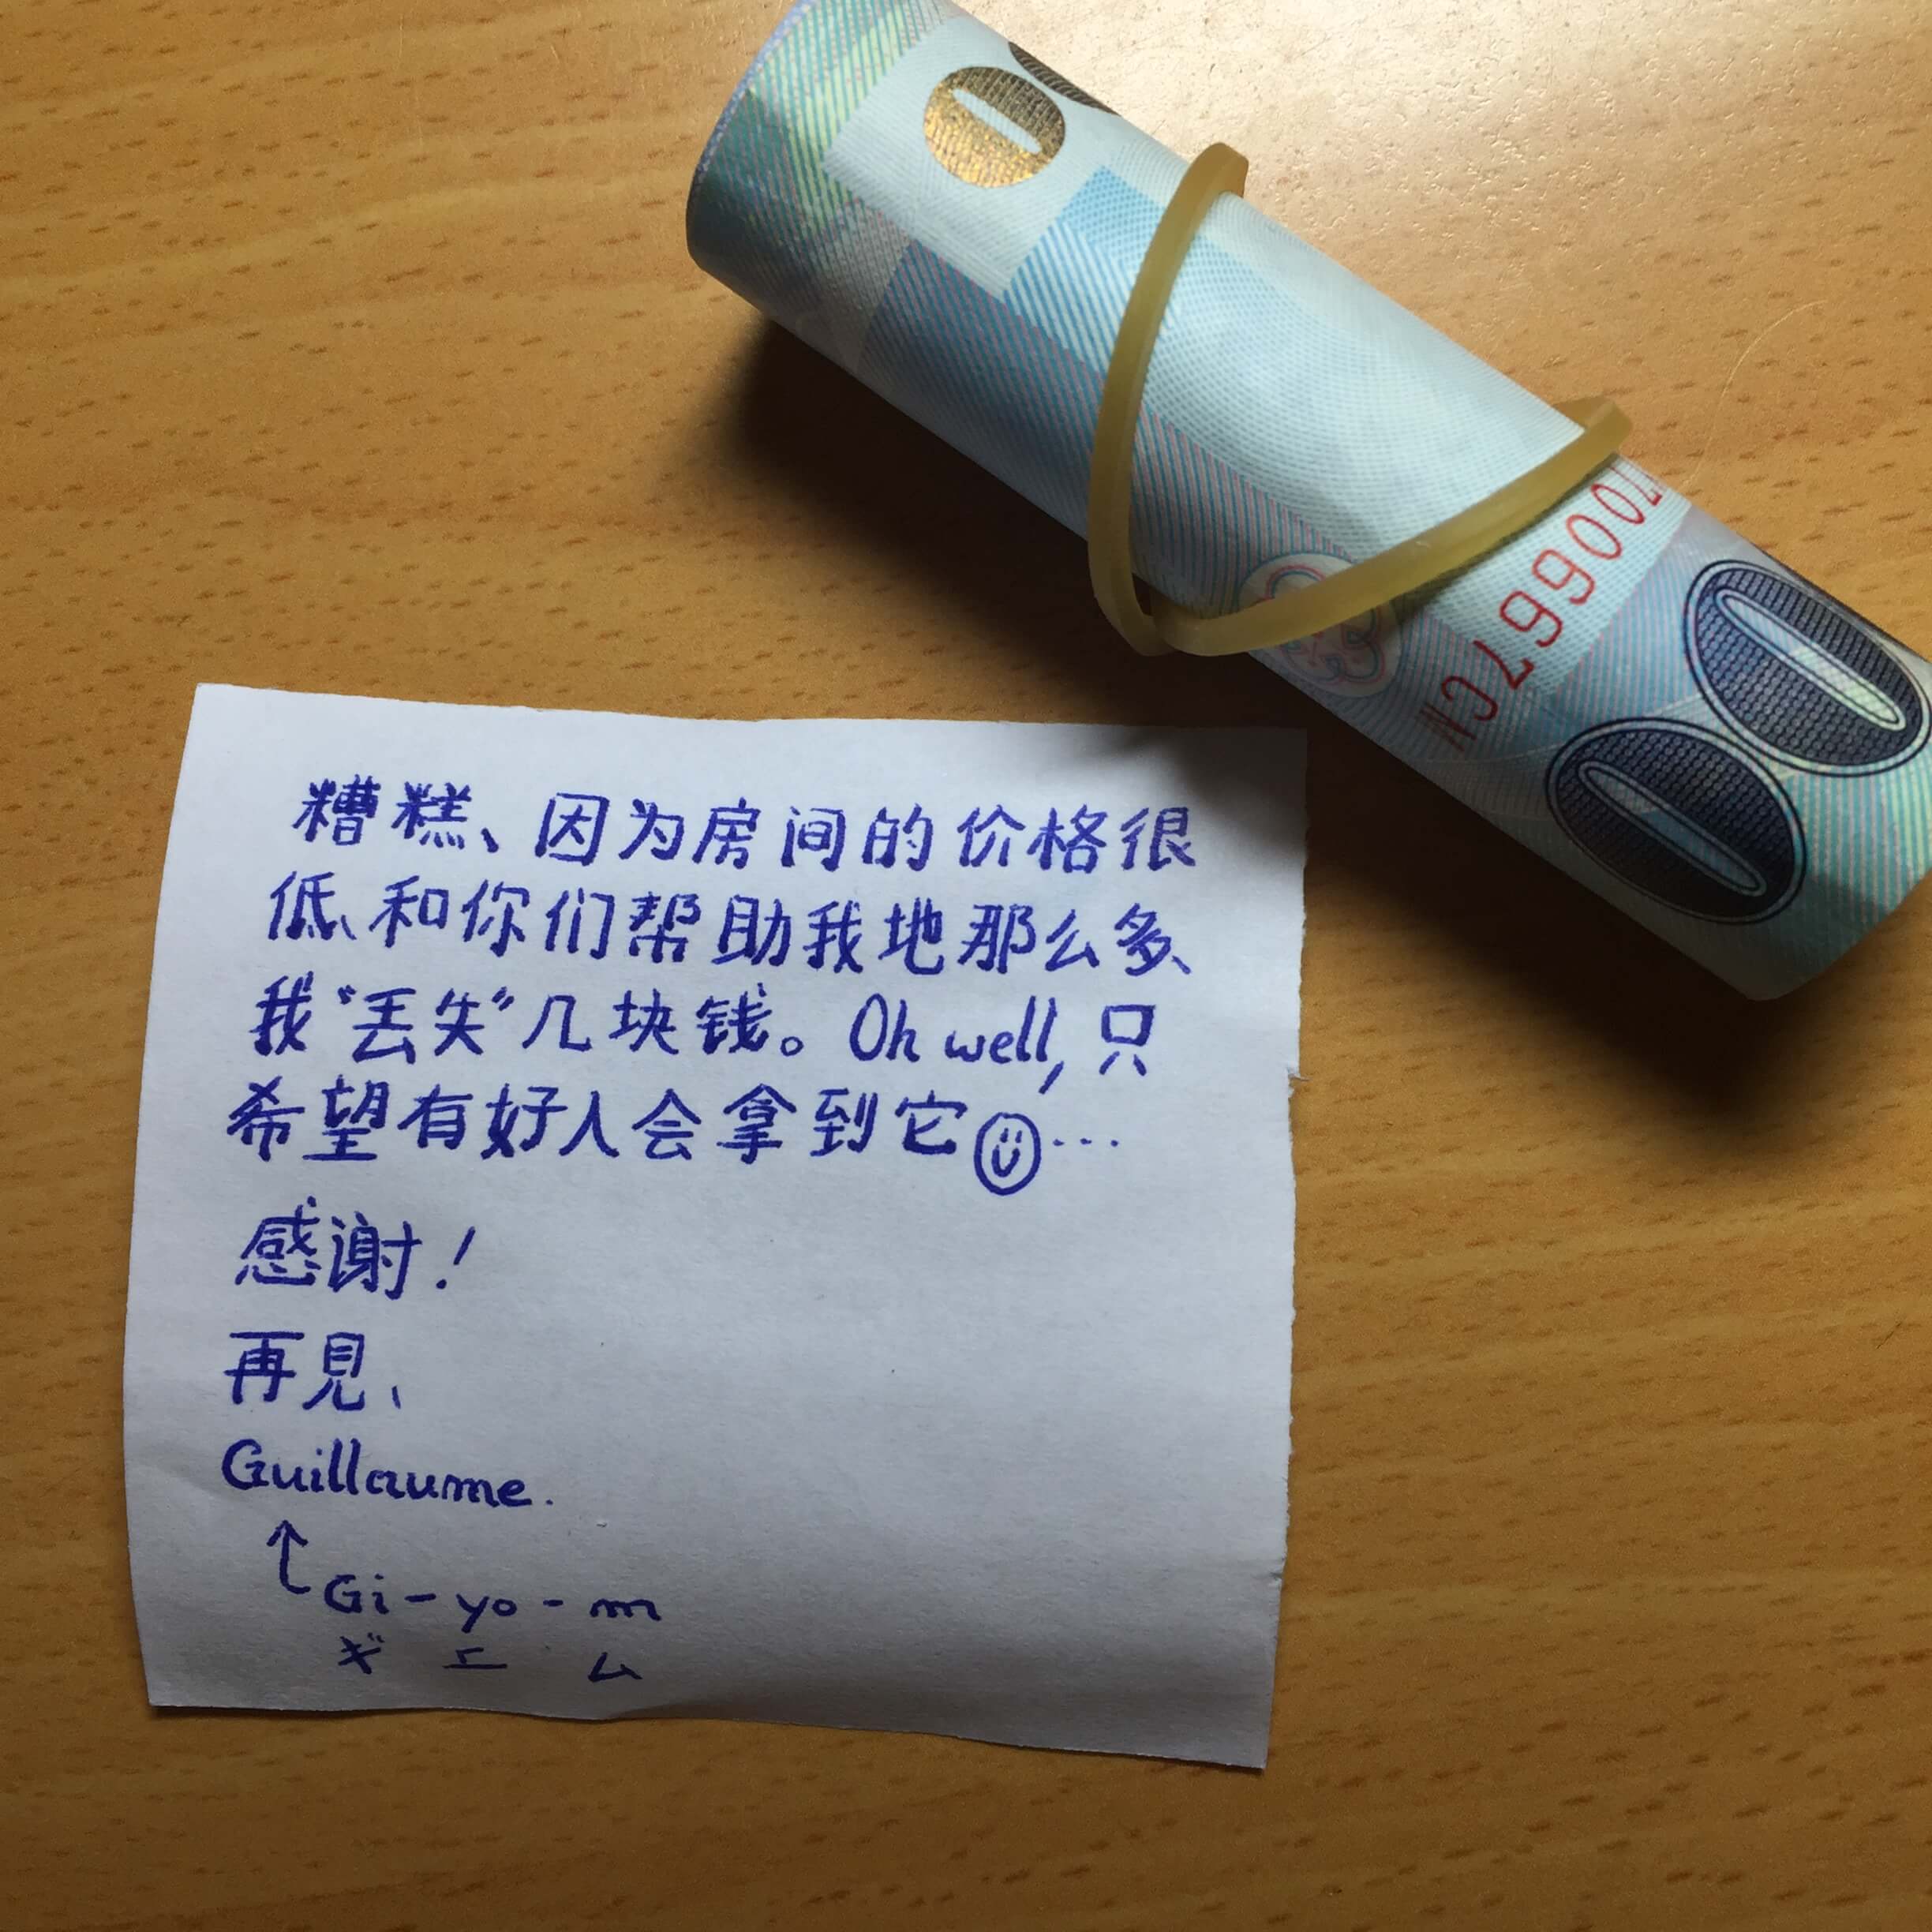 00
CW799007
00
糟糕、因为房间的价格很
低、和你们帮助我地那么多、
我“丢失”几块钱。Oh well, 只
希望有好人会拿到它☺...
感谢!
再見、
Guillaume.
↑ Gi-yo-m
ギ エ ム